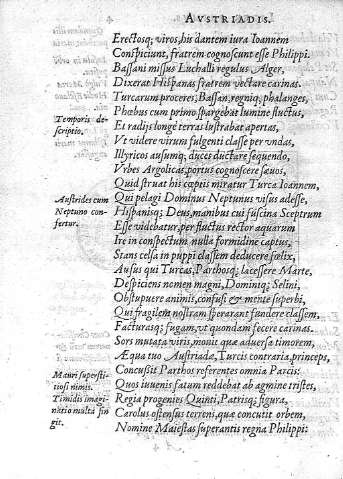 AVSTRIADIS.
Erectosq; viros, his dantem iura Ioannem
Conspiciunt, fratrem cognoscunt esse Philippi.
Bassani missus Luchalli regulus Alger,
Dixerat Hispanas fratrem vectare carinas.
Turcarum proceres, Bassan, regniq; phalanges,
Phœbus cum primo spargebat lumine fluctus,
Temporis de-
scriptio.
Et radijs longè terras lustrabat apertas,
Vt videre virum fulgenti classe per vndas,
Illyricos ausumq; duces ductare sequendo,
Vrbes Argolicas, portus cognoscere sæuos,
Quid struat his cœpsis miratur Turca Ioannem,
Austrides cum
Neptuno con-
fertur.
Qui pelagi Dominus Neptunus visus adesse,
Hispanisq; Deus, manibus cui fuscina Sceptrum
Esse videbatur, per fluctus rector aquarum
Ire in conspectum nulla formidine captus,
Stans celsa in puppi classem deducere fœlix,
Ausus qui Turcas, Parthosq; lacessere Marte,
Despiciens nomen magni, Dominiq; Selini,
Obstupuere animis, confusi & mente superbi,
Qui fragilem nostram sperarant fundere classem,
Facturasq; fugam, vt quondam fecere carinas.
Sors mutata viris, mouit quæ aduersa timorem,
Æqua tuo Austriada, Turcis contraria, princeps,
Mauri supersti-
tiosi nimis.
Timidis imagi-
natio multa fin
git.
Concussit Parthos referentes omnia Parcis:
Quos iuuenis fatum reddebat ab agmine tristes,
Regia progenies Quinti, Patrisq; figura,
Carolus ostensus terrens, quæ concutit orbem,
Nomine Maiestas superantis regna Philippi: